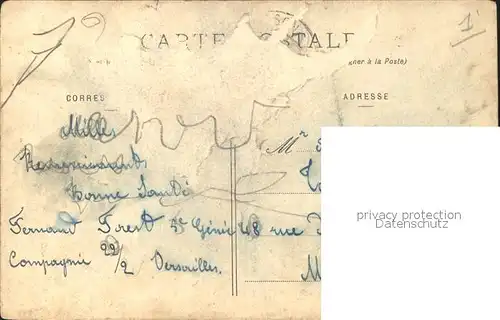 CARTE POSTALE
gner à la Poste)
CORRES
ADRESSE
Milles
Remerciements
Bonne Santé
Fernand Forest 5e Génie
Compagnie 22/2 Versailles.
Mr
48 rue
M
privacy protection
Datenschutz